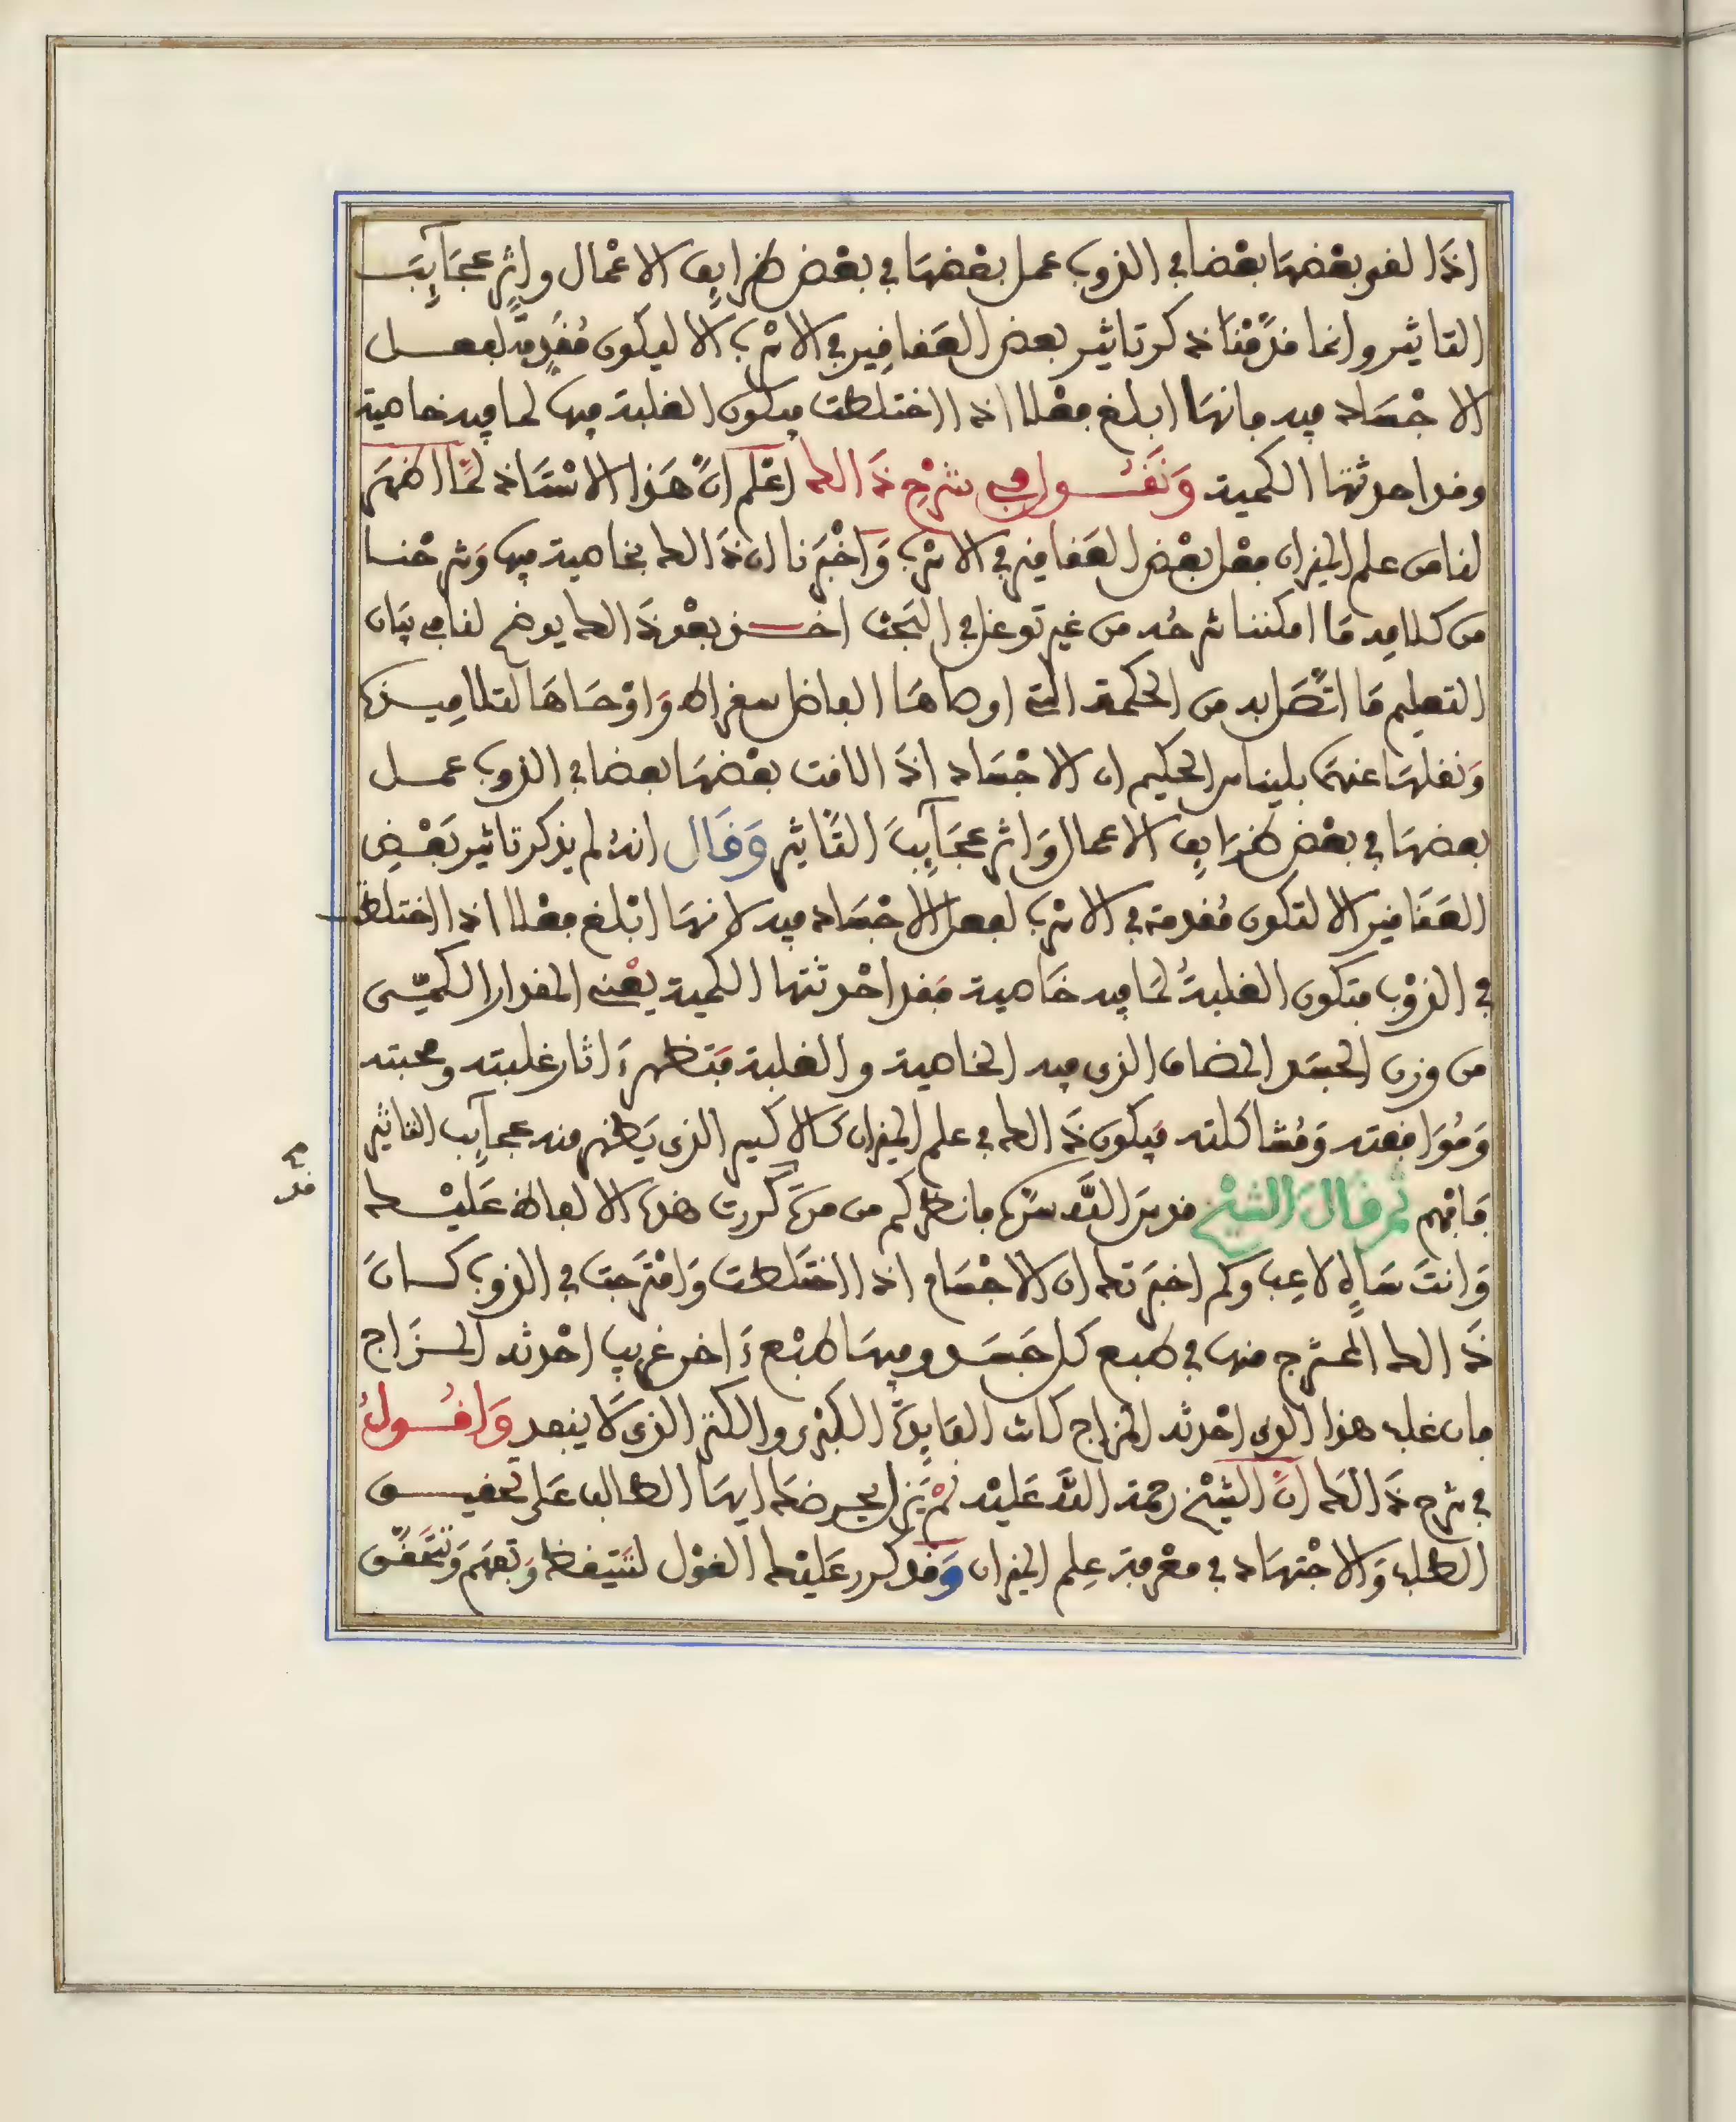 اذَا لقي بعْضهَا بعْضا في الذوب عمل بعْضهَا في بعْض طرايف الاعْمال واثر عجَآيِبَ
التاثير وانما قدّمْنا ذكر تاثير بعض العَقاقِير في الاثرب الا ليكون مُقدِمة لفعل
الاجْسَاد فيه فانهَا ابلغ فعْلا اذا اختلطت فيكون الغلبة فيها لما فيه خاصية
وقد احدثتها الكمية وَنَقُول في شرْحِ ذَالك اعْلم انّ هَذا الاسْتَاذ لمّا اظهَر
لنا من علم الميزان فعْل بعْض العَقاقير في الاثرب وَاخْبَرنا ان ذَالك بخاصية فيها وَشرحْنا
من كلامه مَا امكننا شرحُه من غير توغل في البَحث اخذ بعْد ذَالك يوضح لنا في بيَان
التعليم مَا اتّصَل به من الحكمة التي اوصاهَا الفاضل سقراط وَاوْحَاهَا لتلاميذه
وَنقلهَا عنهم بليناس الحكيم ان الاجْسَاد اذَا لاقت بعْضهَا بعضا في الذوب عمل
بعضهَا في بعْض طرَايف الاعمال وَاثر عجَآيِبَ التّاثير وَقَال انهُ لم يذكر تاثير بَعْضِ
العَقَاقير الا لتكون مُقدمة في الاثرب لفعل الاجْسَاد فيه لانهَا ابْلغ فعْلا اذا اختلطت
في الذوْب فتكون الغلبةُ لمَا فيه خَاصية فقد احْدثتها الكمية يعْني المقدار الكميّ
من وزن الجسَد المضاف الذي فيه الخاصية والغلبة فَتظهر ءَاثار غلبته ومحبته
وَمُوَافقته وَمُشاكلته فيكون ذَالك في علم الميزان كالاكسير الذي يَظهر منه عجَآيب التاثير
فَافهم ثم قَالَ الشيْخ قدسَ اللّه سرّه فانظر كم من مرّة كررت هذه الالفاظ عَليْك
وَانتَ سَاهٍ لاعِب وكم اخبرَتك ان الاجْسَام اذا اختَلطت وَامْتزجت في الذوب كانَ
ذَالك الممتزج منها في طبع كل جَسَد وفيهَا طبْع ءَاخر غريب احْدثه المزَاج
فان غلب هذا الذي احْدثه المزاج كانت الفَايدَة الكبْرى والكنز الذي لَا ينفد وَاقُولُ
في شرح ذَالكَ انّ الشيْخ رحمة اللّه عَليْه لمْ يَزل يحرضك ايهَا الطالب عَلى تحقيق
الطلب وَالاجْتهَاد في معْرفة عِلم الميزان وَقد كرر عَليْك القوْل لتَتيقظ وَتفهَم وَتتَحَقّق